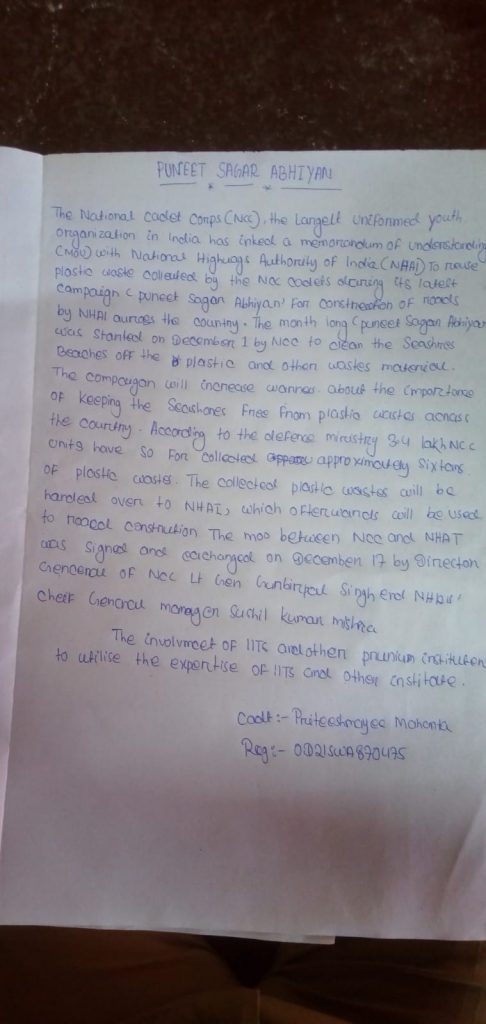 PUNEET SAGAR ABHIYAN
The National cadet Corps (Ncc), the Largelt unifonmed youth
organization in India has inked a memorandum of understanding
(MOU) with National Highways Authority of India (NHAI) To reuse
plastic waste collected by the Ncc cadets during its latest
campaign (puneet Sagan Abhiyan) For construction of roads
by NHAI auross the country. The month long (puneet Sagan Abhiyan
was Stanted on December 1 by NCC to clean the Seashres
Beaches off the plastic and othen wastes matenial.
The campaugan will increase wannes about the importance
of keeping the Seashones Free From plastic wastes acnass
the country. According to the defence ministry 3.4 lakh Ncc
units have so Far collected approximately Six tons
of plastic wastes. The collected plastic wastes will be
handed over to NHAI, which ofterwands will be used
to road constnution The moo between Ncc and NHAI
was Signed and exchanged on December 17 by Directon
Genenal of Ncc Lt Gen Gunbirpal Singh end NHAI's
cheif General managen Suchil kuman mishra
The involvmeet of IITs and othen prunium instituten
to utilise the expentise of IITs and othen institate.
Cadt :- Priteeshmayee Mohanta
Reg :- OD21SWA870475